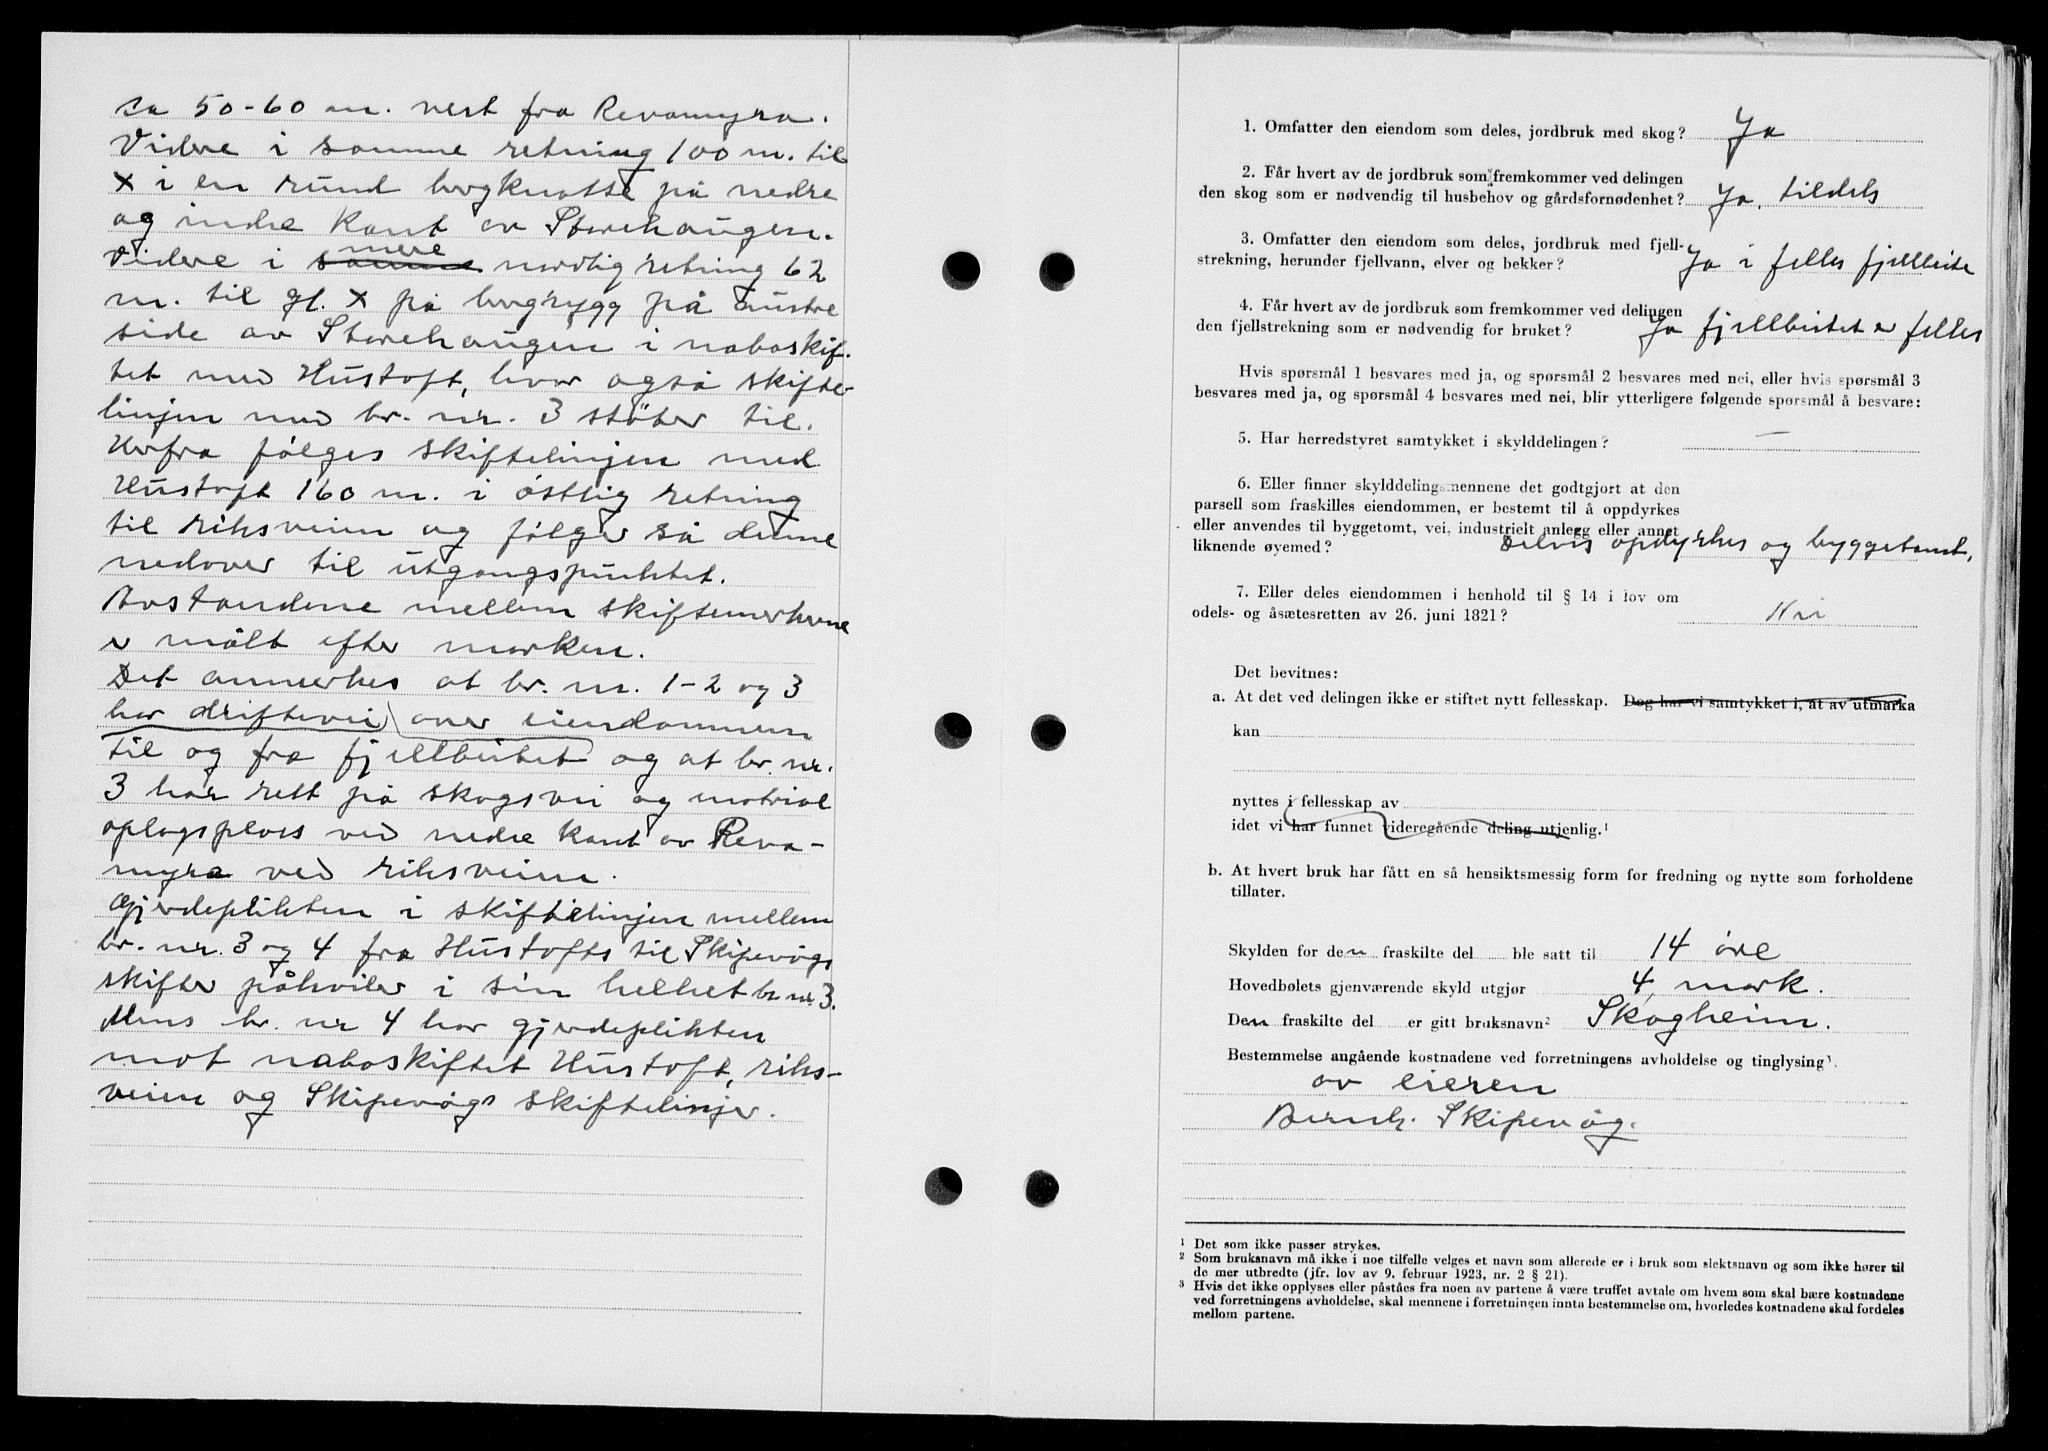 ca 50-60 m. vest fra Revamyra.
Videre i samme retning 100 m. til
x i en rund bergknatte på nedre
og indre kant av Storehaugen.
Videre i samme mere nordlig retning 62
m. til gl. x på bergrygg på austre
side av Storehaugen i naboskif-
tet med Hustoft, hvor også skifte-
linjen med br. nr. 3 støter til.
Herfra følges skiftelinjen med
Hustoft 160 m. i østlig retning
til riksveien og følger så denne
nedover til utgangspunktet.
Avstandene mellem skiftemerkene
er målt efter marken.
Det anmerkes at br. nr. 1-2 og 3
har driftevei over eiendommen
til og fra fjellbeitet og at br. nr.
3 har rett på skogsvei og material
oplagsplass ved nedre kant av Reva-
myra ved riksveien.
Gjerdeplikten i skiftelinjen mellem
br. nr. 3 og 4 fra Hustofts til Skipevågs
skifter påhviler i sin helhet br nr 3.
Mens br. nr 4 har gjerdeplikten
mot naboskiftet Hustoft, riks-
veien og Skipevågs skiftelinjer.
1. Omfatter den eiendom som deles, jordbruk med skog? Ja
2. Får hvert av de jordbruk som fremkommer ved delingen
den skog som er nødvendig til husbehov og gårdsfornødenhet? Ja, tildels
3. Omfatter den eiendom som deles, jordbruk med fjell-
strekning, herunder fjellvann, elver og bekker? Ja i felles fjellbeite
4. Får hvert av de jordbruk som fremkommer ved delingen
den fjellstrekning som er nødvendig for bruket? Ja fjellbeitet er felles
Hvis spørsmål 1 besvares med ja, og spørsmål 2 besvares med nei, eller hvis spørsmål 3
besvares med ja, og spørsmål 4 besvares med nei, blir ytterligere følgende spørsmål å besvare:
5. Har herredstyret samtykket i skylddelingen? —
6. Eller finner skylddelingsmennene det godtgjort at den
parsell som fraskilles eiendommen, er bestemt til å oppdyrkes
eller anvendes til byggetomt, vei, industrielt anlegg eller annet
liknende øyemed? Delvis opdyrkes og byggetomt,
7. Eller deles eiendommen i henhold til § 14 i lov om
odels- og åsætesretten av 26. juni 1821? Nei
Det bevitnes:
a. At det ved delingen ikke er stiftet nytt fellesskap. Dog har vi samtykket i, at av utmarka
kan
nyttes i fellesskap av
idet vi har funnet videregående deling utjenlig.¹
b. At hvert bruk har fått en så hensiktsmessig form for fredning og nytte som forholdene
tillater.
Skylden for den fraskilte del ble satt til 14 øre
Hovedbølets gjenværende skyld utgjør 4 mark.
Den fraskilte del er gitt bruksnavn² Skogheim.
Bestemmelse angående kostnadene ved forretningens avholdelse og tinglysing³.
av eieren
Bernh. Skipevåg.
¹ Det som ikke passer strykes.
² Som bruksnavn må ikke i noe tilfelle velges et navn som allerede er i bruk som slektsnavn og som ikke hører til
de mer utbredte (jfr. lov av 9. februar 1923, nr. 2 § 21).
³ Hvis det ikke opplyses eller påståes fra noen av partene å være truffet avtale om hvem som skal bære kostnadene
ved forretningens avholdelse, skal mennene i forretningen innta bestemmelse om, hvorledes kostnadene skal fordeles
mellom partene.